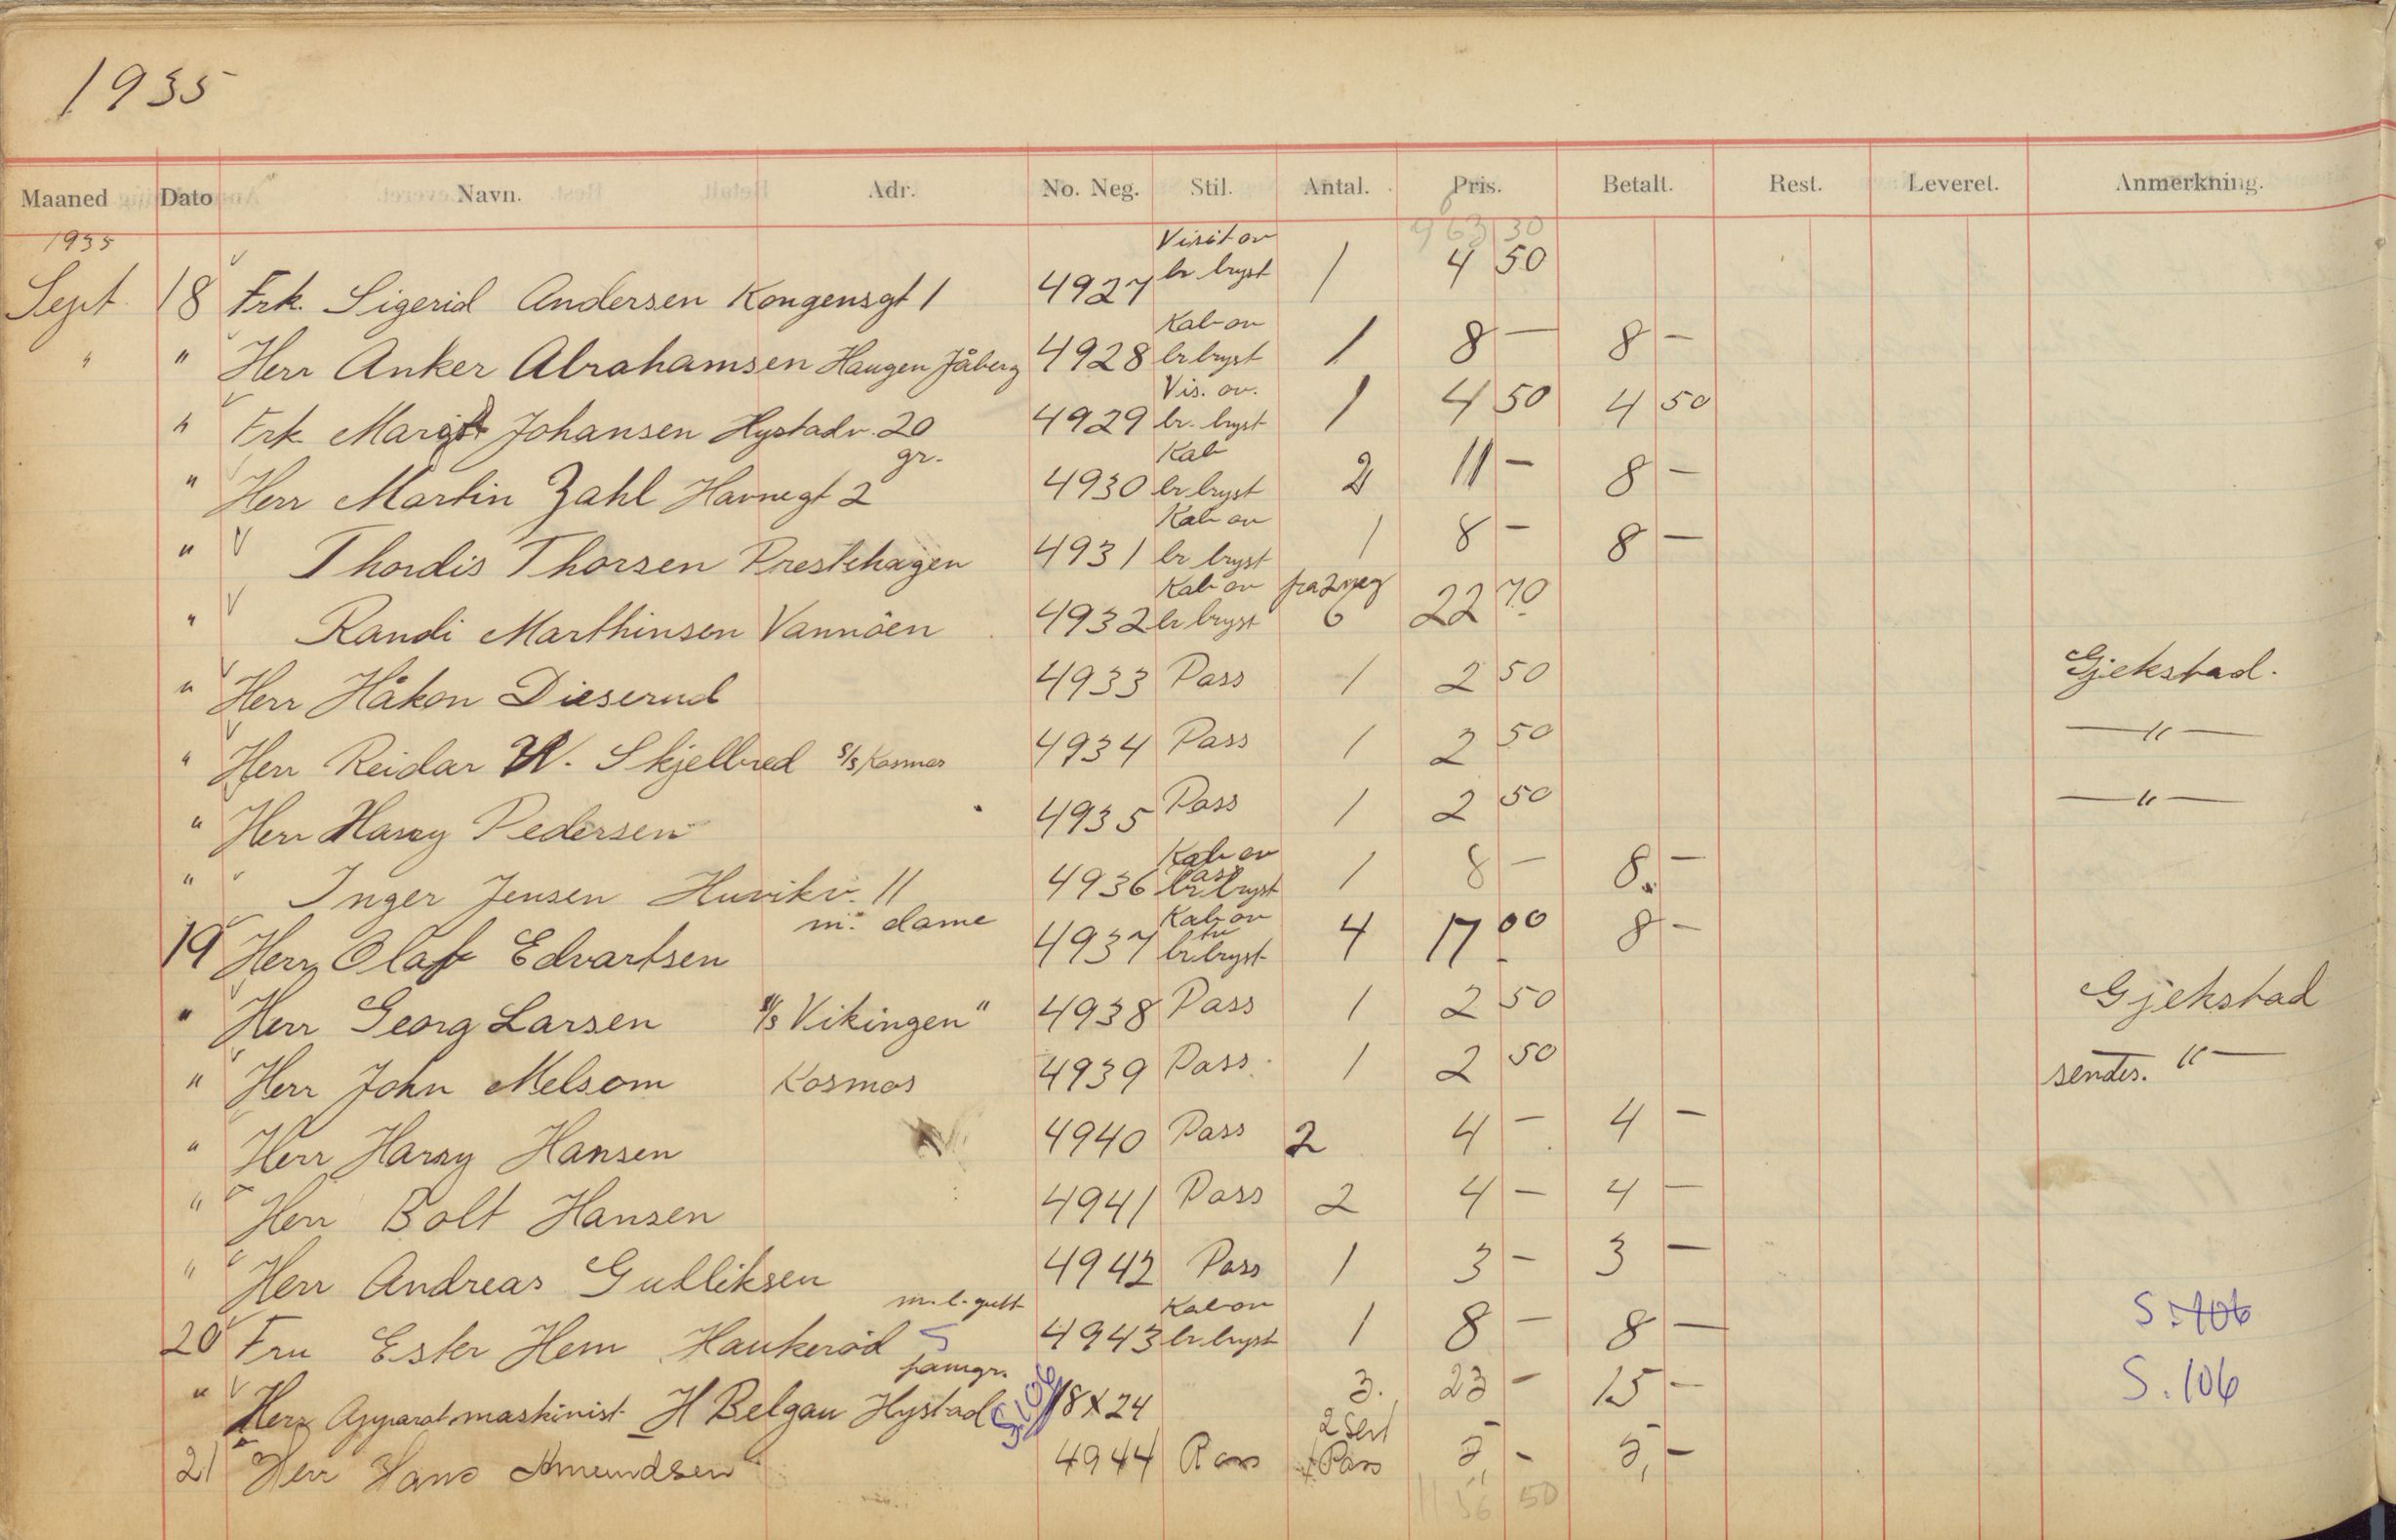 1935
Maaned Dato Navn. Adr. No. Neg. Stil. Antal. Pris. Betalt. Rest. Leveret. Anmerkning.
1935 Visit ov 963 30
Sept. 18 Frk. Sigerid Andersen Kongensgt 1 4927 br bryst 1 4 50
Kab ov
" " Herr Anker Abrahamsen Haugen Jåberg 4928 br bryst 1 8 — 8 —
Vis. ov.
" Frk Margit Johansen Hystadv. 20 4929 br. bryst 1 4 50 4 50
gr. Kab
" Herr Martin Zahl Havnegt 2 4930 br bryst 2 11 — 8 —
Kab ov
" Thordis Thorsen Prestehagen 4931 br bryst 1 8 — 8 —
Kab ov fra 2 neg
" Randi Marthinsen Vannöen 4932 br bryst 6 22 70
" Herr Håkon Dieserud 4933 Pass 1 2 50 Gjekstad.
" Herr Reidar W. Skjelbred S/s Kosmos 4934 Pass 1 2 50 — " —
" Herr Harry Pedersen 4935 Pass 1 2 50 — " —
Kab ov
" " Inger Jensen Huvikv. 11 4936 br bryst 1 8 — 8. —
m. dame Kab ov
19 Herr Olaf Edvartsen 4937 br bryst 4 17 00 8 —
" Herr Georg Larsen S/s Vikingen" 4938 Pass 1 2 50 Gjekstad
" Herr John Melsom Kosmos 4939 Pass. 1 2 50 sendes. " —
" Herr Harry Hansen 4940 Pass 2 4 — 4 —
" Herr Bolt Hansen 4941 Pass 2 4 — 4 —
" Herr Andreas Gulliksen 4942 Pass 1 3 — 3 —
m. l. gutt Kab ov S. 106
20 Fru Ester Hem Haukeröd 4943 br. bryst 1 8 — 8 —
famgr. S. 106
" Herr Apparatmaskinist H Belgau Hystad S106 18 X 24 3. 23 — 15 —
2 Sert
21 Herr Hans Amundsen 4944 Pass + Pass 5 — 5, —
11 56 50